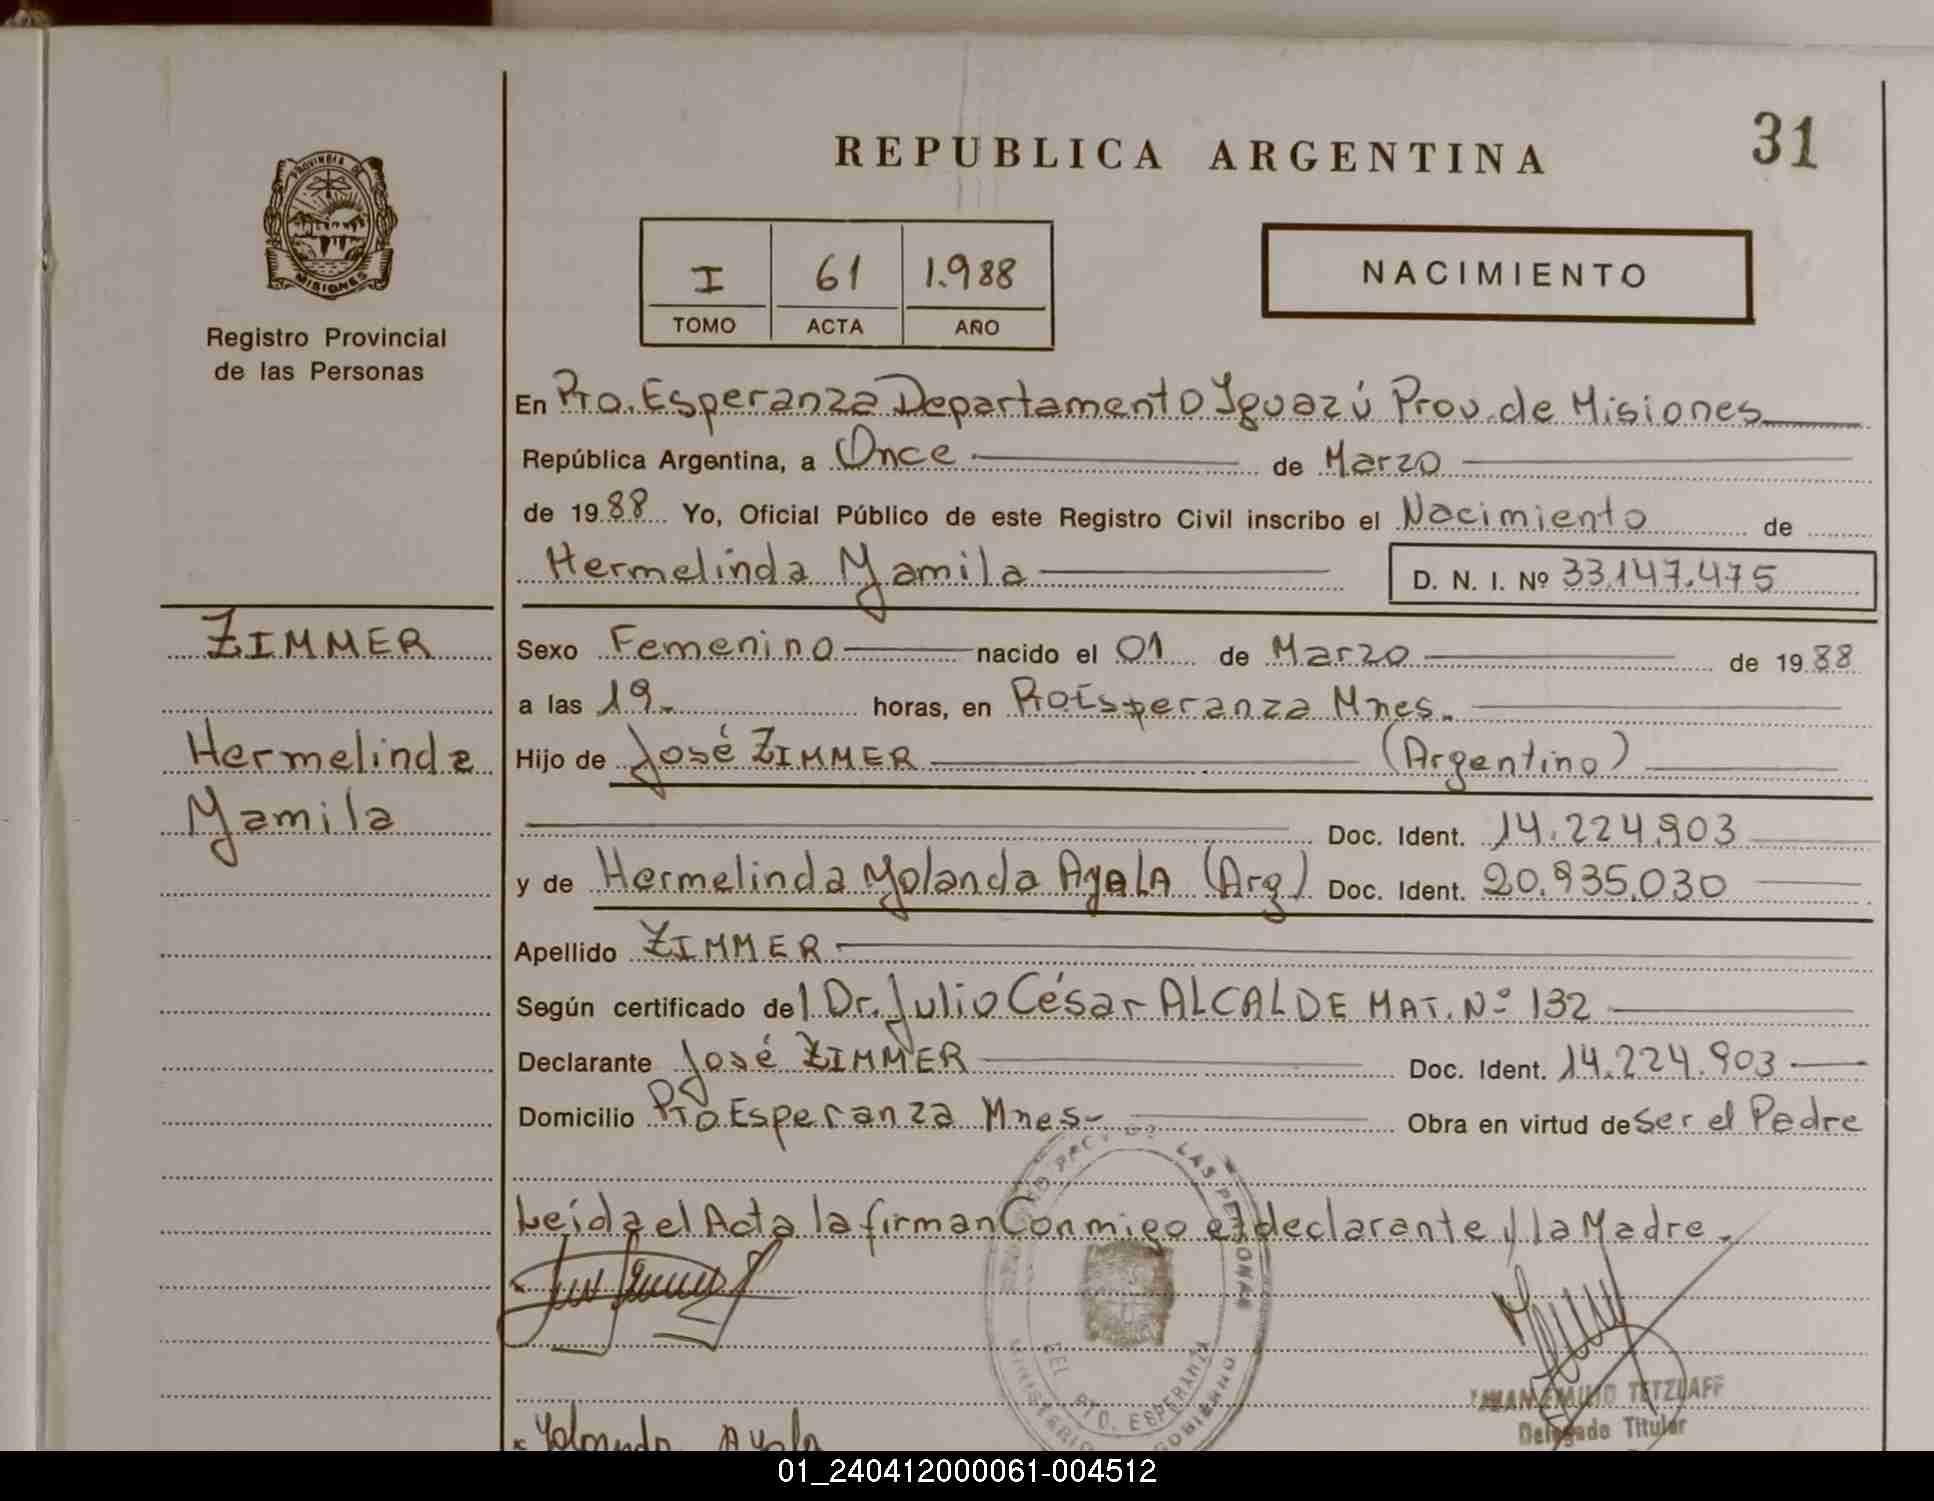 REPUBLICA ARGENTINA
31
PROVINCIA DE
MISIONES
Registro Provincial
de las Personas
I 61 1.988
TOMO ACTA AÑO
NACIMIENTO
En Pto. Esperanza Departamento Iguazú Prov. de Misiones
República Argentina, a Once de Marzo
de 1988 Yo, Oficial Público de este Registro Civil inscribo el Nacimiento de
Hermelinda Yamila D. N. I. Nº 33.147.475
ZIMMER
Hermelinda
Yamila
Sexo Femenino nacido el 01 de Marzo de 1988
a las 19. horas, en Pto Esperanza Mnes.
Hijo de José ZIMMER (Argentino)
Doc. Ident. 14.224.903
y de Hermelinda Yolanda AyaLA (Arg) Doc. Ident. 20.935.030
Apellido ZIMMER
Según certificado del Dr. Julio César ALCALDE MAT. Nº 132
Declarante José ZIMMER Doc. Ident. 14.224.903
Domicilio Pto Esperanza Mnes- Obra en virtud de Ser el Padre
Leída el Acta la firman Conmigo el declarante y la Madre.
LAS PERSONAS
DEL PTO. ESPERANZA
MINISTERIO GOBIERNO
EMILIO TETZLAFF
Delegado Titular
Yolanda Ayala
01_240412000061-004512